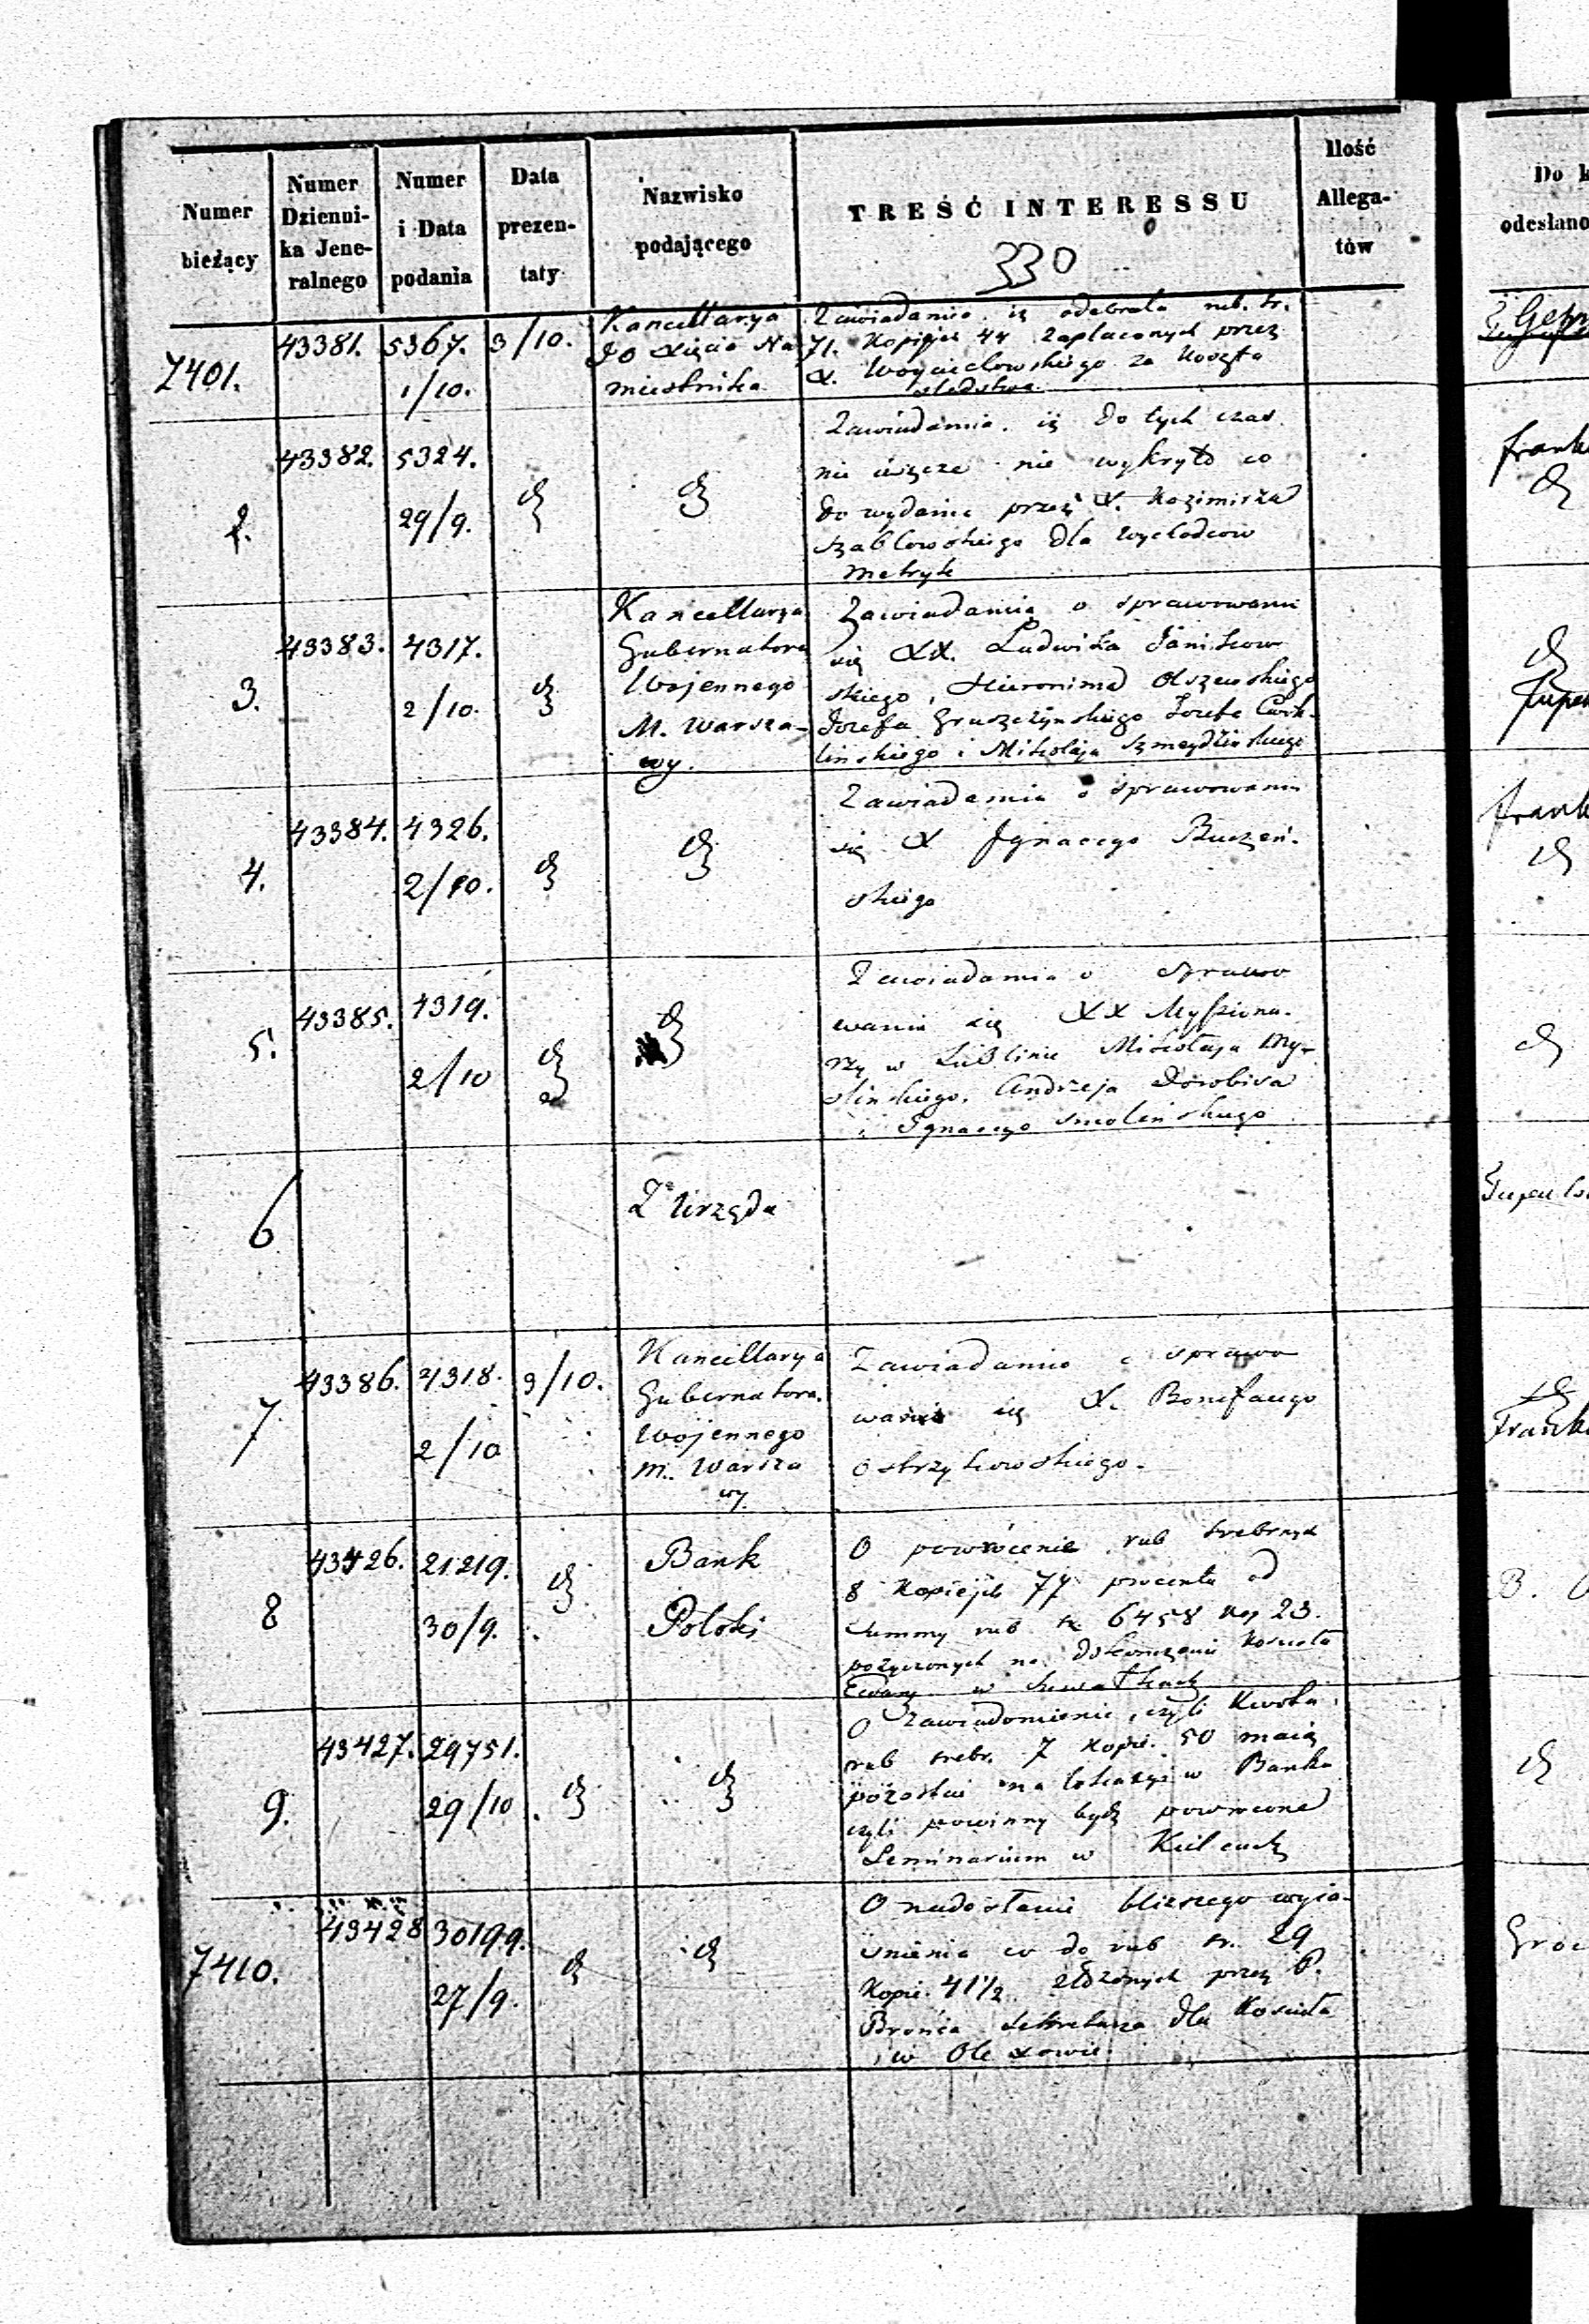 Numer bieżący
Numer Dzienni-ka Jene-ralnego
Numer i Data podania
Data prezen-taty
Nazwisko podającego
TREŚĆ INTERESSU
Ilość Allega-tów
Do k
odesłano
330
7401.
43381.
5367.
1/10.
3/10.
Kancellarya
JO Xięcia Na
miestnika
Zawiadamia, iż odebrała rub. sr.
71. Kopijek 44 zapłaconych przez
X. Woyciechowskiego za koszta
śledztwa
2.
43382.
5324.
29/9.
Zawiadamia, iż do tych czas
nic więcej nie wykryto co
do wydania przez X. Kazimirza
Szablowskiego dla wychodców
metryk
3.
43383.
4317.
2/10.
Kancellarya
Gubernatora
Wojennego
M. Warsza-
wy.
Zawiadamia o sprawowaniu
się XX. Ludwika Janiszow
skiego, Hieronima Olszewskiego
Józefa Gruszczyńskiego Józefa
lińskiego i Mikołaja
4.
43384.
4326.
2/10.
Zawiadamia o sprawowaniu
się X Ignacego
skiego
5.
43385.
4319.
2/10
Zawiadamia o sprawo
waniu się XX Myssiona-
rzy w Lublinie Mikołaja My-
ślińskiego, Andrzeja Dorobisa
i Ignacego Smoleńskiego
6
Z Urzędu
7
43386.
4318.
2/10
3/10.
Kancellarya
Gubernatora
Wojennego
M. Warsza
wy.
Zawiadamia o sprawo
waniu się X. Bonifacego
Ostrzykowskiego.
8
43426.
21219.
30/9.
Bank
Polski
O powrócenie rub srebrnych
8 Kopiejek 77 procentu od
Summy rub sr 6458 kop 23.
pożyczonych na dokończenie Kościoła
Ewang w Suwałkach
9.
43427.
29751.
29/10
O zawiadomienie, czyli kwota
rub srebr. 7 kopie. 50 maią
pozostać na lokacyi w Banku
czyli powinny bydź powrócone
Seminarium w Kielcach
7410.
43428
30199.
27/9.
O nadesłanie bliższego wyja-
śnienia co do rub sr. 29
Kopie. 41 1/2 złożonych przez P.
Brońca Sekretarza dla Kościoła
w Olexowie.